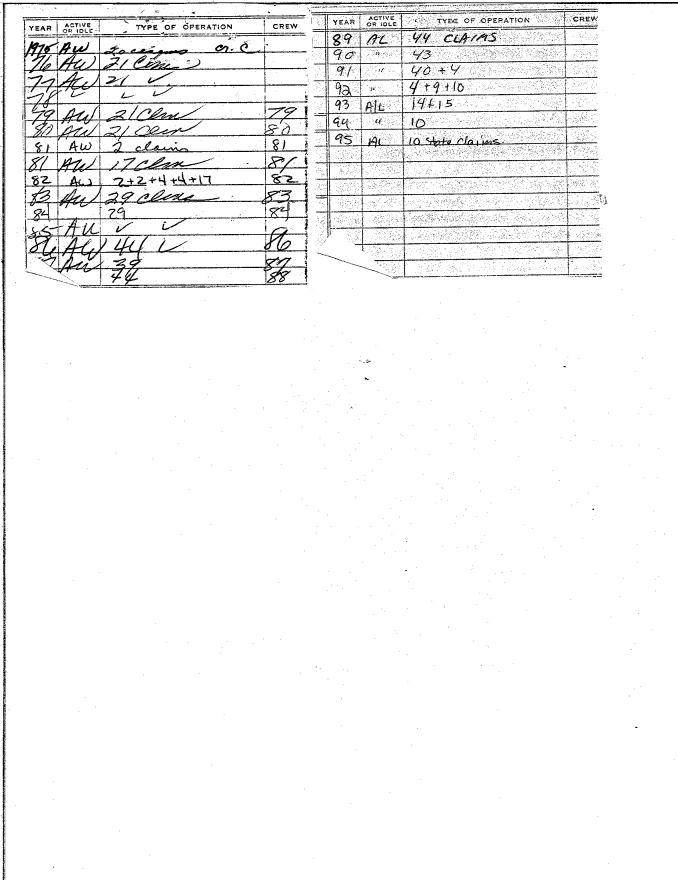 YEAR ACTIVE OR IDLE TYPE OF OPERATION CREW
1975 AW
76 AW 21 Clms
77 AW 21 ✓
78 ✓ ✓ ✓
79 AW 21 Clm 79
80 AW 21 Clm 80
81 AW 2 claims 81
81 AW 17 Clm 81
82 AW 2+2+4+4+17 82
83 AW 29 Clms 83
84 29 84
85 AW ✓ ✓
86 AW 44 ✓ 86
AW 39 87
44 88
YEAR ACTIVE OR IDLE TYPE OF OPERATION CREW
89 AL 44 CLAIMS
90 " 43
91 " 40 + 4
92 " 4 + 9 + 10
93 A/L 14+15
94 " 10
95 AL 10 State Claims